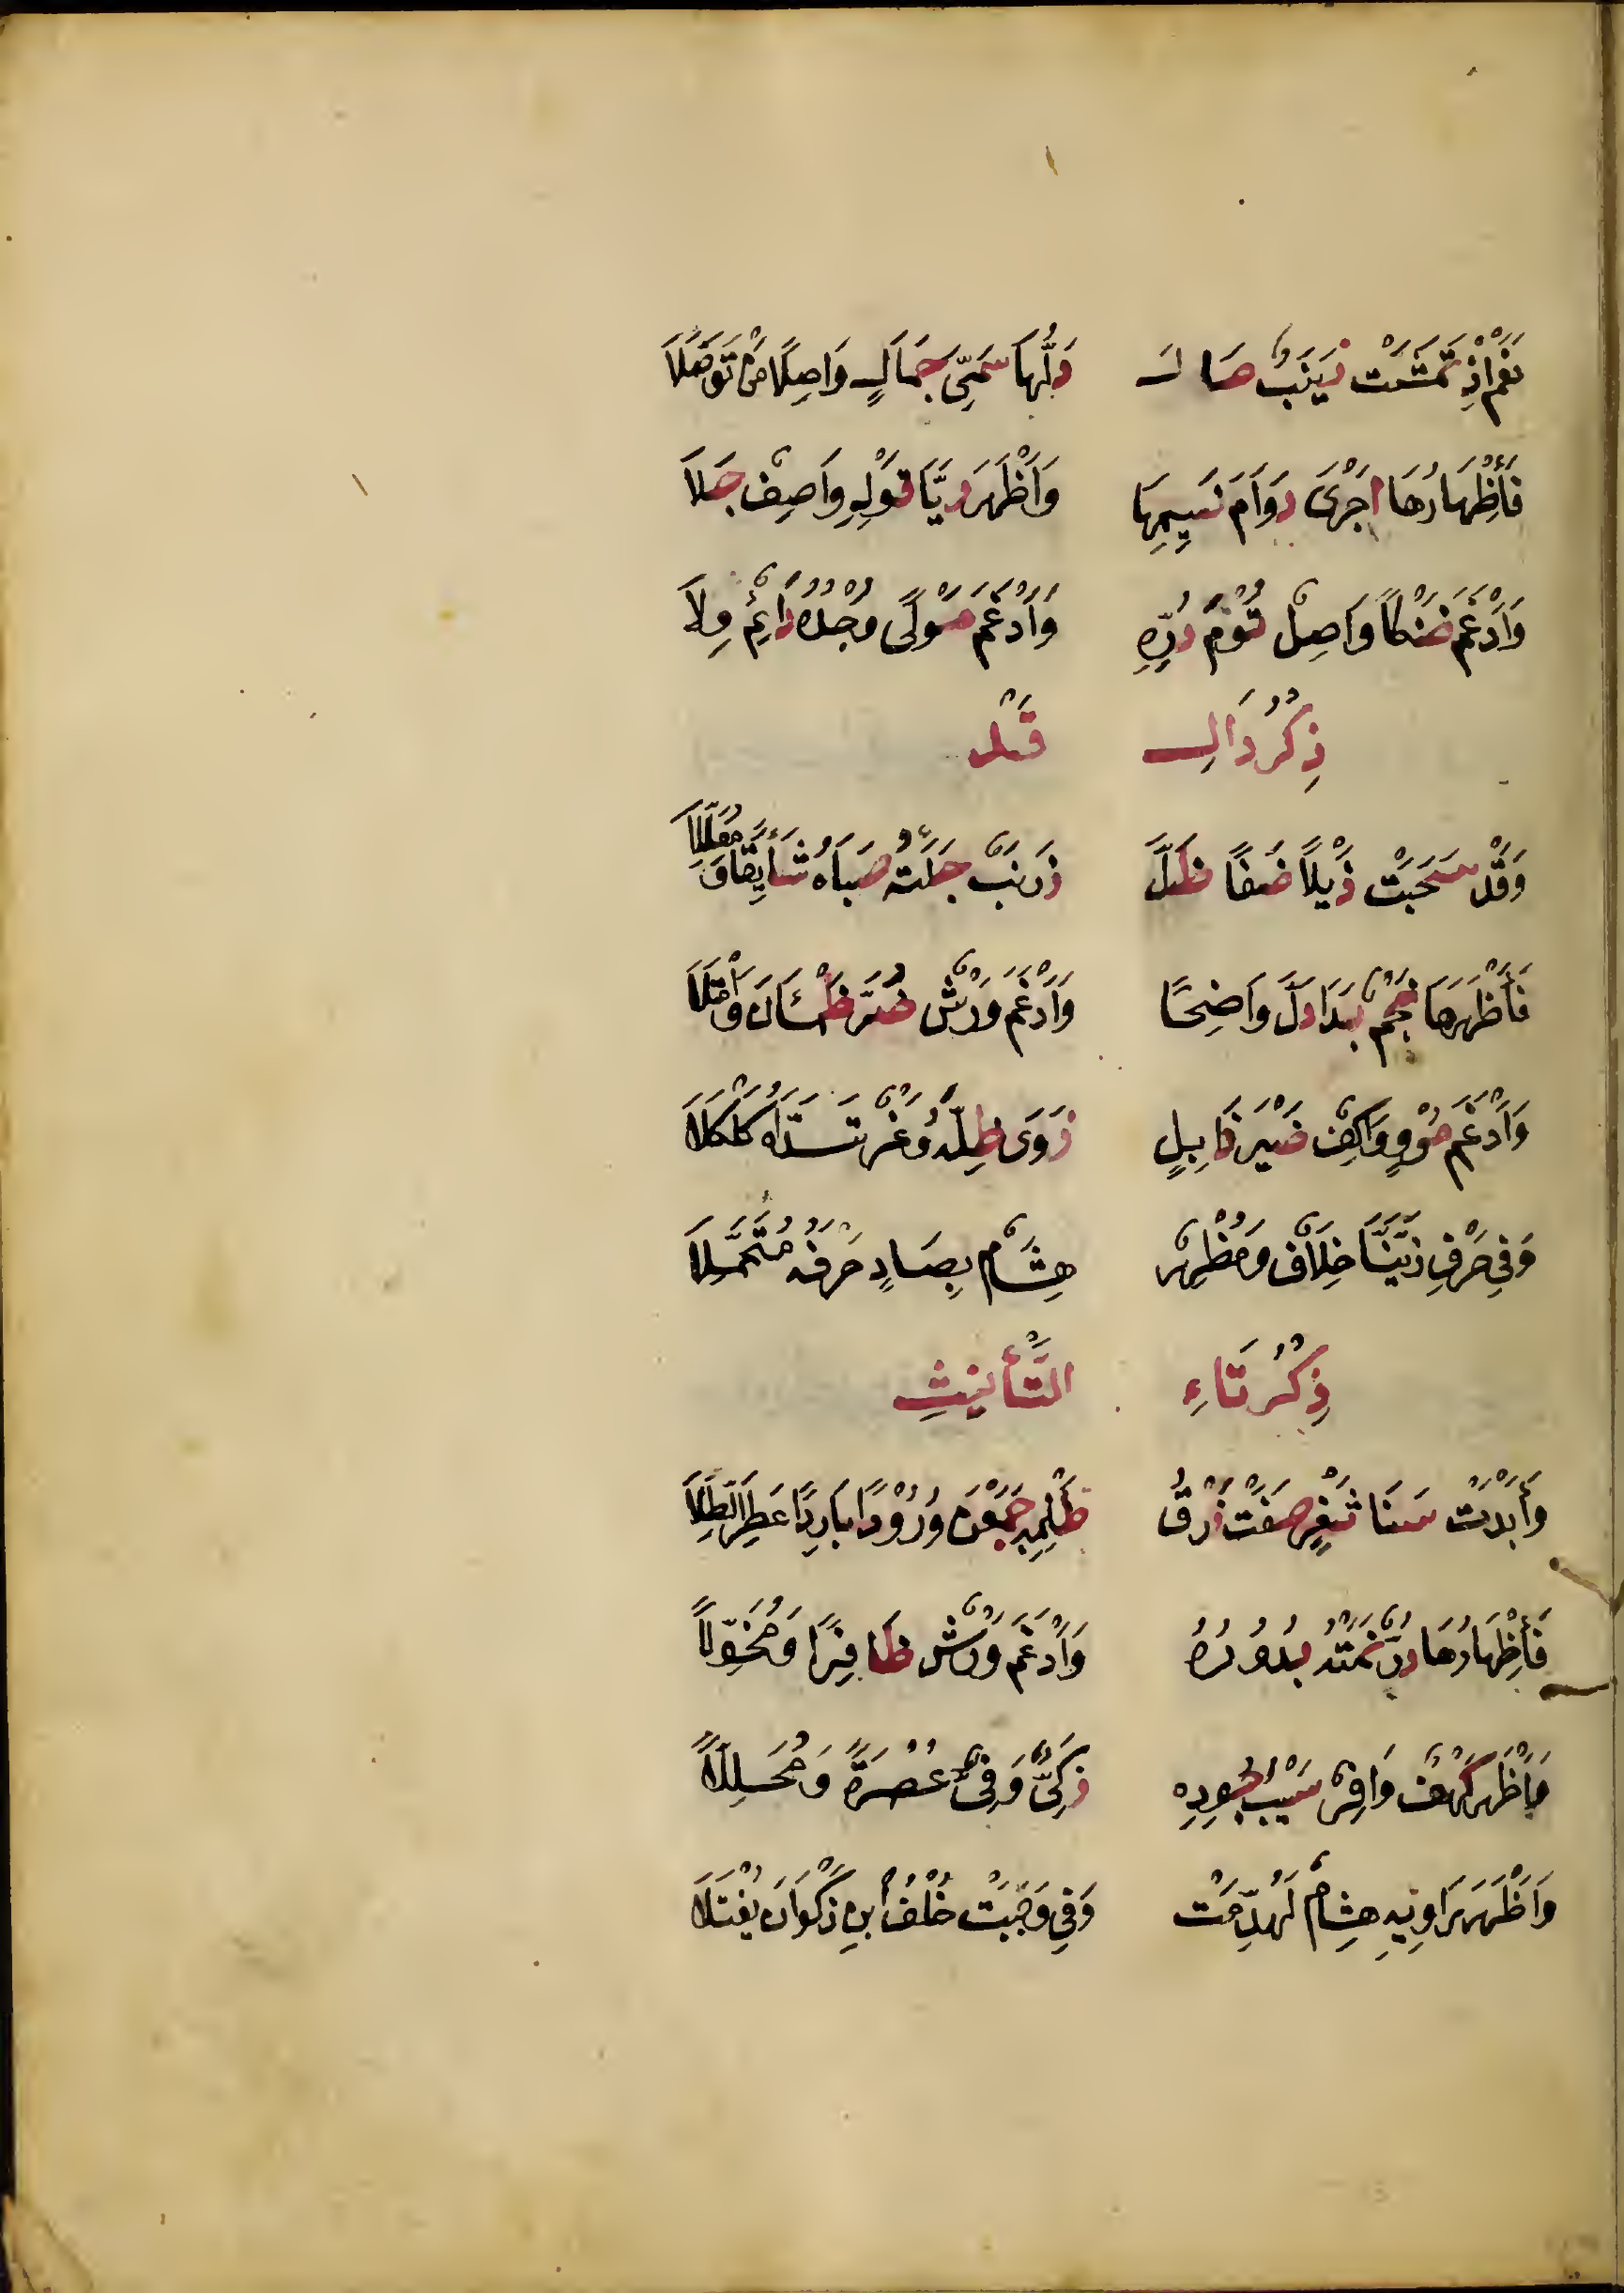 نَعَمْ اِذْ تَمَشَّتْ زَيْنَبٌ صَالَ دَلُّهَا سَمِيَّ جَمَالٍ وَاصِلًا مَنْ تَوَصَّلَا
فَأَظْهَارُهَا اَجْرَى دَوَامَ نَسِيمِهَا وَاَظْهَرَ رَيَّا قَوْلِهِ وَاصِفٌ جَلَا
وَاَدْغَمَ ضَنْكًا وَاصِلٌ تُوْمَ دُرِّهِ وَاَدْغَمَ مَوْلًى وُجْدُهُ دَائِمٌ وِلَا
ذِكْرُ دَالِ قَدْ
وَقَدْ سَحَبَتْ ذَيْلًا ضَفَا ظَلَّ زَرْنَبٌ جَلَتْهُ صَبَاهُ شَايِقًا وَمُعَلَّلَا
فَأَظْهَرَهَا نَجْمٌ بَدَا دَلَّ وَاضِحًا وَاَدْغَمَ وَرْشٌ ضَرَّ ظَمْئَانَ وَامْتَلَا
وَاَدْغَمَ مُرْوٍ وَاكِفٌ ضَيْرَ ذَابِلٍ زَوَى ظِلَّهُ وَغْرٌ تَسَدَّاهُ كَلْكَلَا
وَفِي حَرْفِ زَيَّنَّا خِلَافٌ وَمُظْهِرٌ هِشَامٌ بِصَادٍ حَرْفَهُ مُتَحَمِّلَا
ذِكْرُ تَاءِ التَّأْنِيثِ
وَأَبْدَتْ سَنَا ثَغْرٍ صَفَتْ زُرْقُ ظَلْمِهِ جَمَعْنَ وُرُوْدًا بَارِدًا عَطِرَ الطِّلَا
فَأِظْهَارُهَا دُرٌّ نَمَتْهُ بُدُورُهُ وَاَدْغَمَ وَرْشٌ ظَافِرًا وَمُخَوِّلَا
وَاَظْهَرَ كَهْفٌ وَافِرٌ سَيْبُ جُودِهِ زَكِيٌّ وَفِيٌّ عُصْرَةً وَمُحَلَّلَا
وَاَظْهَرَ رَاوِيهِ هِشَامٌ لَهُدِّمَتْ وَفِي وَجَبَتْ خُلْفُ ابْنِ ذَكْوَانَ يُفْتَلَا